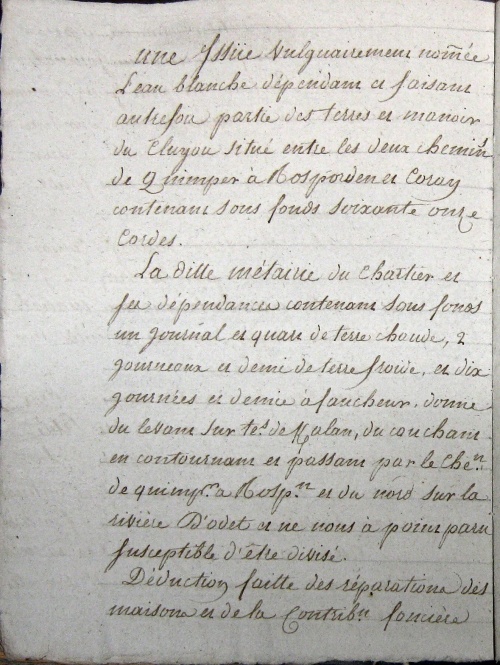 une Issüe Vulguairement nom̃ée
Leau blanche dépendant et faisant
autrefois partie des terres et manoir
du Cluyou situé entre les deux chemins
de Quimper à Rosporden et Coray
contenant sous fonds soixante onze
Cordes.
La ditte métairie du Chartier et
ses dépendances contenant sous fonds
un journal et quart de terre chaude, 2
journeaux et demi de terre froide, et dix
journées et demie à faucheur, donne
du levant sur tes. de Kalan, du couchant
en contournant et passant par le Chen.
de quimpr. a Rospn. et du nord sur la
rivière D'odet et ne nous à point paru
susceptible d'être divisé.
Déduction faitte des réparations des
maisons et de la Contribn. foncière